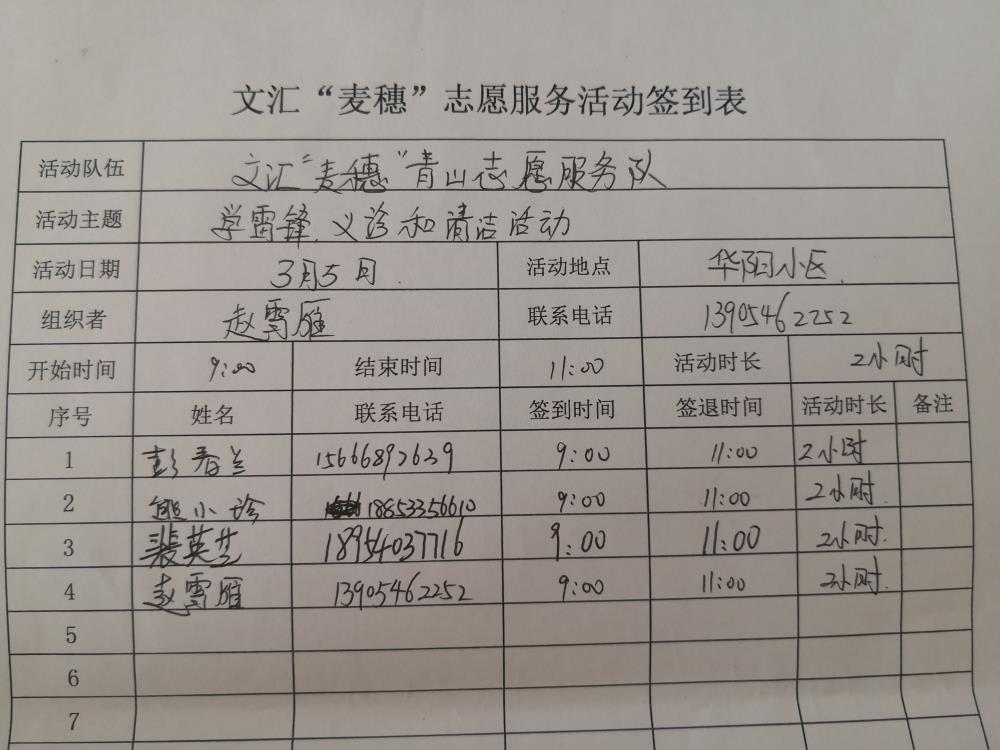 文汇“麦穗”志愿服务活动签到表
活动队伍 文汇“麦穗”青山志愿服务队
活动主题 学雷锋、义诊和清洁活动
活动日期 3月5日. 活动地点 华阳小区.
组织者 赵雪雁 联系电话 13905462252
开始时间 9:00 结束时间 11:00 活动时长 2小时
序号 姓名 联系电话 签到时间 签退时间 活动时长 备注
1 彭春兰 15666892639 9:00 11:00 2小时
2 熊小珍 18853356610 9:00 11:00 2小时.
3 裴英芝 18954037716 9:00 11:00 2小时.
4 赵雪雁 13905462252 9:00 11:00 2小时.
5
6
7